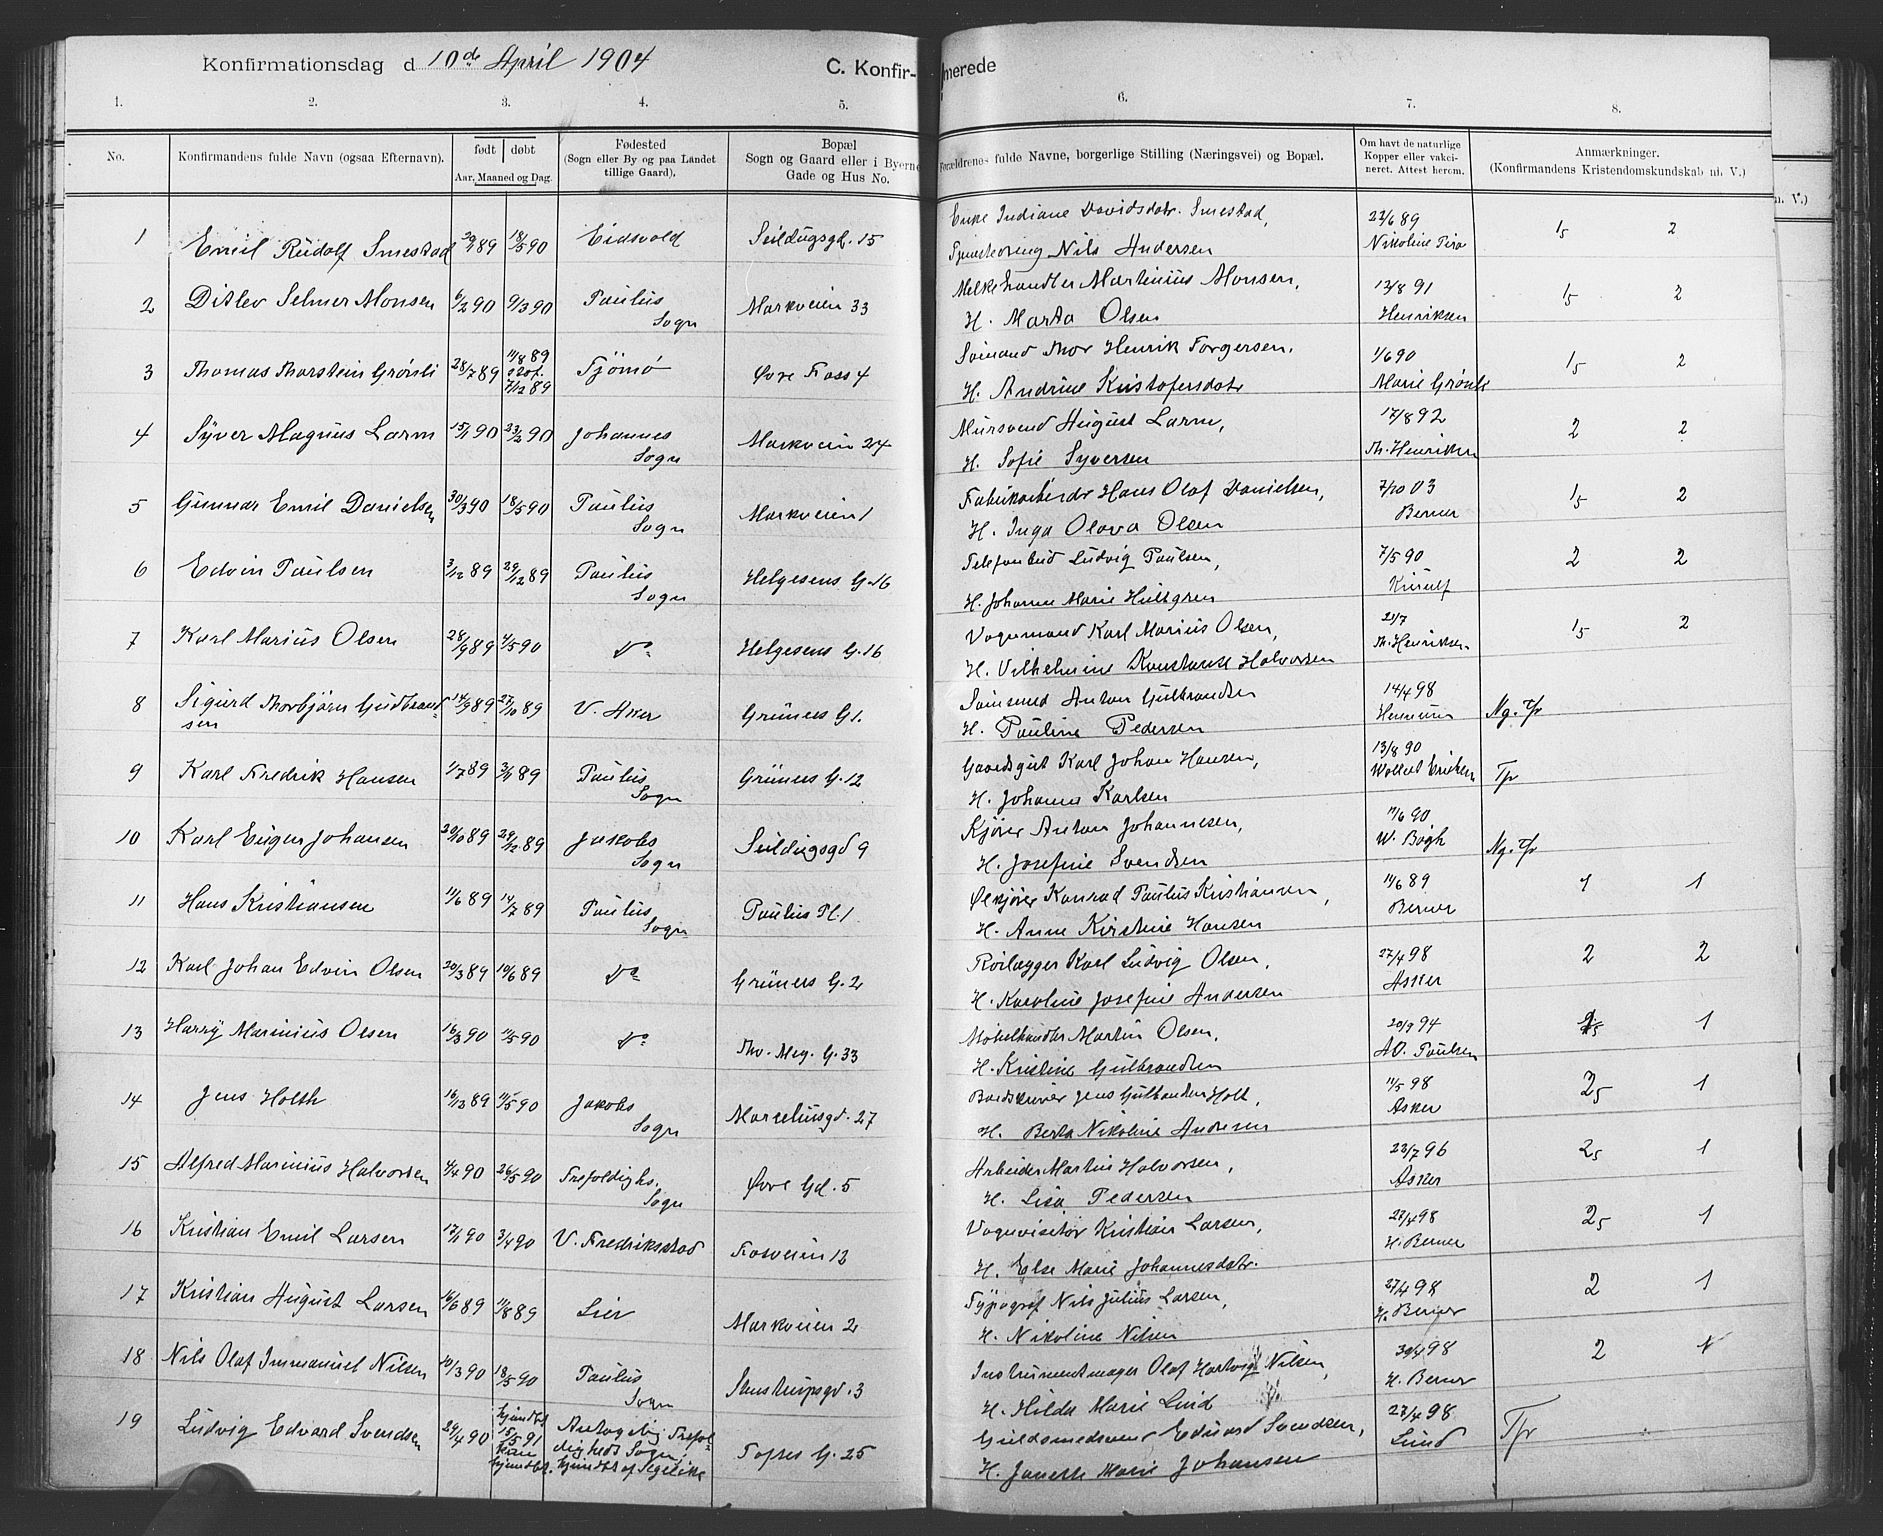 Konfirmationsdag d 10de April 1904 C. Konfir- merede
1. 2. 3. 4. 5. 6. 7. 8.
No. Konfirmandens fulde Navn (ogsaa Efternavn). født døbt Aar, Maaned og Dag. Fødested (Sogn eller By og paa Landet tillige Gaard). Bopæl Sogn og Gaard eller i Byerne Gade og Hus No. Forældrenes fulde Navne, borgerlige Stilling (Næringsvei) og Bopæl. Om havt de naturlige Kopper eller vakcineret. Attest herom. Anmærkninger. (Konfirmandens Kristendomskundskab nb. V.)
n. V.)
1 Emil Rudolf Smestad 89 18/5 90 Eidsvold Seildugsgd. 15 Enke Indiane Davidsdatr. Smestad, 22/6 89 15 2
Nils Andersen Nikoline
2 Ditlev Selmer Monsen 6/2 90 9/3 90 Paulus Sogn Markveien 33 Melkehandler Martinius Monsen, 13/8 91 15 2
H. Marta Olsen Henriksen
3 Thomas Thorstein Grønli 28/7 89 11/8 89 7/12 89 Tjømø Øvre Foss 4 Sømand Thor Henrik Torgersen, 1/6 90 15 2
H. Andrine Kristofersdatr Marie Grønli
4 Syver Magnus Larm 15/1 90 23/2 90 Johannes Sogn Markveien 24 Mursvend August Larm, 17/8 92 2 2
H. Sofie Syversen Th. Henriksen
5 Gunnar Emil Danielsen 30/3 90 18/5 90 Paulus Sogn Markveien 1 Fabrikarbeider Hans Olaf Danielsen, 7/10 03 15 2
H. Inga Olava Olsen Berner
6 Edvin Paulsen 3/12 89 29/12 89 Paulus Sogn Helgesens G. 16 Telefonbud Ludvig Paulsen, 7/5 90 2 2
H. Johanne Marie Hultgren Kierulf
7 Karl Marius Olsen 28/9 89 4/5 90 Do Helgesens G. 16 Vognmand Karl Marius Olsen, 21/7 15 2
H. Vilhelmine Konstanse Halvorsen Th. Henriksen
8 Sigurd Thorbjørn Gudbrandsen 14/9 89 27/10 89 V. Aker Grüners G 1. Anton Gulbrandsen 14/4 98 Ng. Tfr
H. Pauline Pedersen
9 Karl Fredrik Hansen 1/7 89 3/11 89 Paulus Sogn Grüners G. 12 Gaardsgut Karl Johan Hansen, 13/8 90 Tfr
H. Johanne Karlsen
10 Karl Eugen Johansen 20/10 89 29/12 89 Jakobs Sogn Seildugsgd 9 Kjører Anton Johannesen, 11/6 90 Ng. Tfr
H. Josefine Svendsen W. Bøgh
11 Hans Kristiansen 11/6 89 14/7 89 Paulus Sogn Paulus Pl. 1 Ølkjører Konrad Paulus Kristiansen, 14/6 89 1 1
H. Anne Kirstine Hansen Berner
12 Karl Johan Edvin Olsen 20/3 89 10/6 89 Do Grüners G. 2 Rørlægger Karl Ludvig Olsen, 27/4 98 2 2
H. Karoline Josefine Andersen Asker
13 Harry Marinius Olsen 16/3 90 11/5 90 Do Thv. Mey. G. 33 Møbelhandler Martin Olsen, 20/9 94 1
H. Kristine Gulbrandsen Paulsen
14 Jens Holth 16/12 89 11/5 90 Jakobs Sogn Marselisgd. 27 Jens Gulbrandsen Holt, 11/5 98 25 1
H. Berta Nikoline Andersen Asker
15 Alfred Marinius Halvorsen 4/4 90 26/5 90 Trefoldighs. Sogn Øvre Gd. 5 Arbeider Martin Halvorsen, 23/7 96 25 1
H. Lisa Pedersen Asker
16 Kristian Emil Larsen 17/1 90 3/4 90 V. Fredriksstad Fosveien 12 Vognvisitør Kristian Larsen, 27/4 98 25 1
H. Else Marie Johannesdatr. H. Berner
17 Kristian August Larsen 16/6 89 11/8 89 Lier Markveien 2 Typograf Nils Julius Larsen, 27/4 98 2 1
H. Nikoline Nilsen H. Berner
18 Nils Olaf Immanuel Nilsen 10/3 90 18/5 90 Paulus Sogn Sanstrupsgd. 3 Instrumentmager Olaf Hartvig Nilsen, 30/4 98 2 1
H. Hilda Marie Lund H. Berner
19 Ludvig Edvard Svendsen 24/4 90 hjemdbt. 15/5 91 hjemdbt. Antagelig Trefoldigheds Sogn, hjemdbt af Tofses G. 25 Guldsmedsvend Edvard Svendsen, 27/4 98 Tfr
H. Janette Marie Johansen Lund